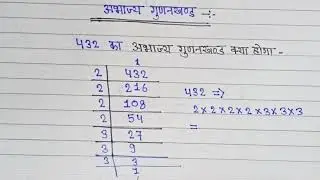 अभाज्य गुणनखण्ड :-
432 का अभाज्य गुणनखण्ड क्या होगा -
1
2 | 432
2 | 216
2 | 108
2 | 54
3 | 27
3 | 9
3 | 3
1
432 ⇒
2×2×2×2×3×3×3
=